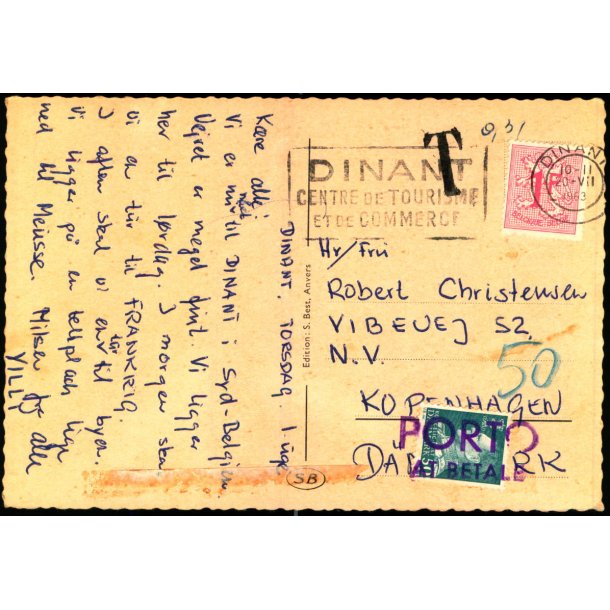 DINANT. TORSDAG.
Kære alle!
Vi er nu nået til DINANT i Syd-Belgien
Vejret er meget fint. Vi ligger
her til lørdag. I morgen skal
vi en tur til FRANKRIG.
I aften skal vi en tur til byen.
Vi ligger på en teltplads lige
ned til Meusse. Hilsen til alle
VILLY
Edition: S. Best, Anvers
SB
T
0,31
DINANT
CENTRE DE TOURISME
ET DE COMMERCE
DINANT
10-11
VII
1963
1F
Hr/Fru
Robert Christensen
VIBEVEJ 52
N.V.
50
KOPENHAGEN
DÄNMARK
PORTO
AT BETALE